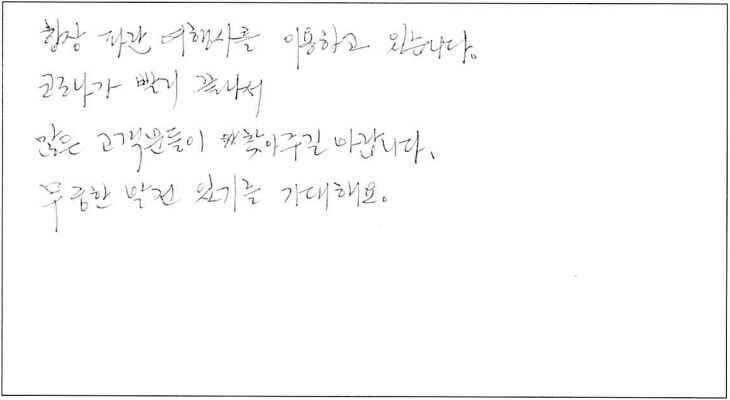 항상 파란 여행사를 이용하고 있습니다.
코로나가 빨리 끝나서
많은 고객분들이 찾아주길 바랍니다.
무궁한 발전 있기를 기대해요.